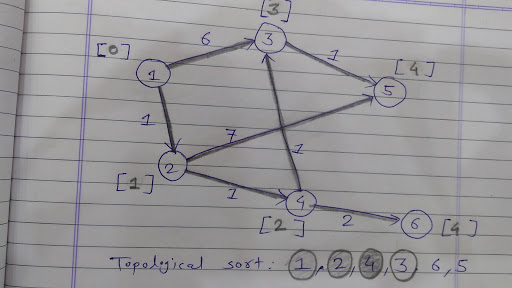 [3]
6
3
[0]
1
1
[4]
5
1
7
2
1
[1]
1
4
2
6
[4]
[2]
Topological sort: 1, 2, 4, 3, 6, 5